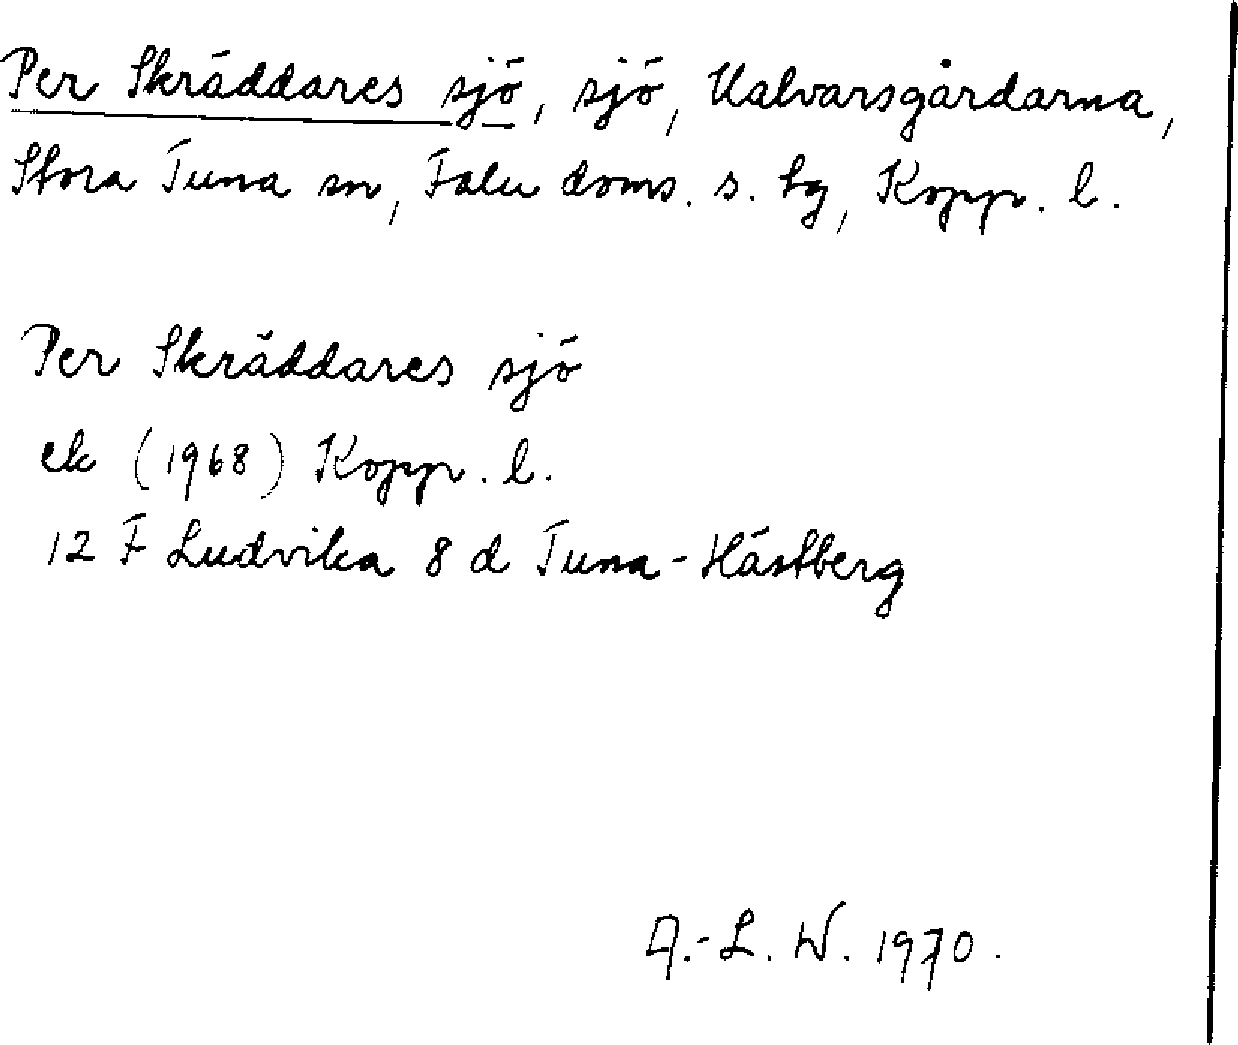 Per Skräddares sjö, sjö, Ualvarsgårdarna,
Stora Tuna sn, Falu doms. s. tg, Kopp. l.
Per Skräddares sjö
ek (1968) Kopp. l.
12 F Ludvika 8 d Tuna-Hästberg
A.-L. W. 1970.